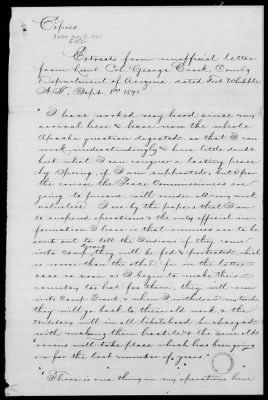 Copies
Extracts from unofficial letter
from Lieut. Col. George Crook, Comd'g
Department of Arizona, dated Fort Whipple
A.T. Sept. 1871.
"I have worked very hard since my
arrival here & have now the whole
Apache question digested, so that I can
work understandingly & have little doubt
but what I can conquer a lasting peace
by Spring, if I am supported, but I fear
the course the Peace Commissioners are
going to pursue, will render all my work
valueless. I see by the papers that I am
to suspend operations & the only official in-
formation I have is that runners are to be
sent out to tell the Indians if they come
into Camp Grant they will be fed & protected which
is worse than the other for in the latter
case so soon as I begin to make their
country too hot for them, they will run
into Camp Grant & when I withdraw my troops
they will go back to their old work & the
Military will in all likelihood be charged
with making them hostile & the same old
will take place which has been going
on for the last number of years."
"There is one thing in my operations here